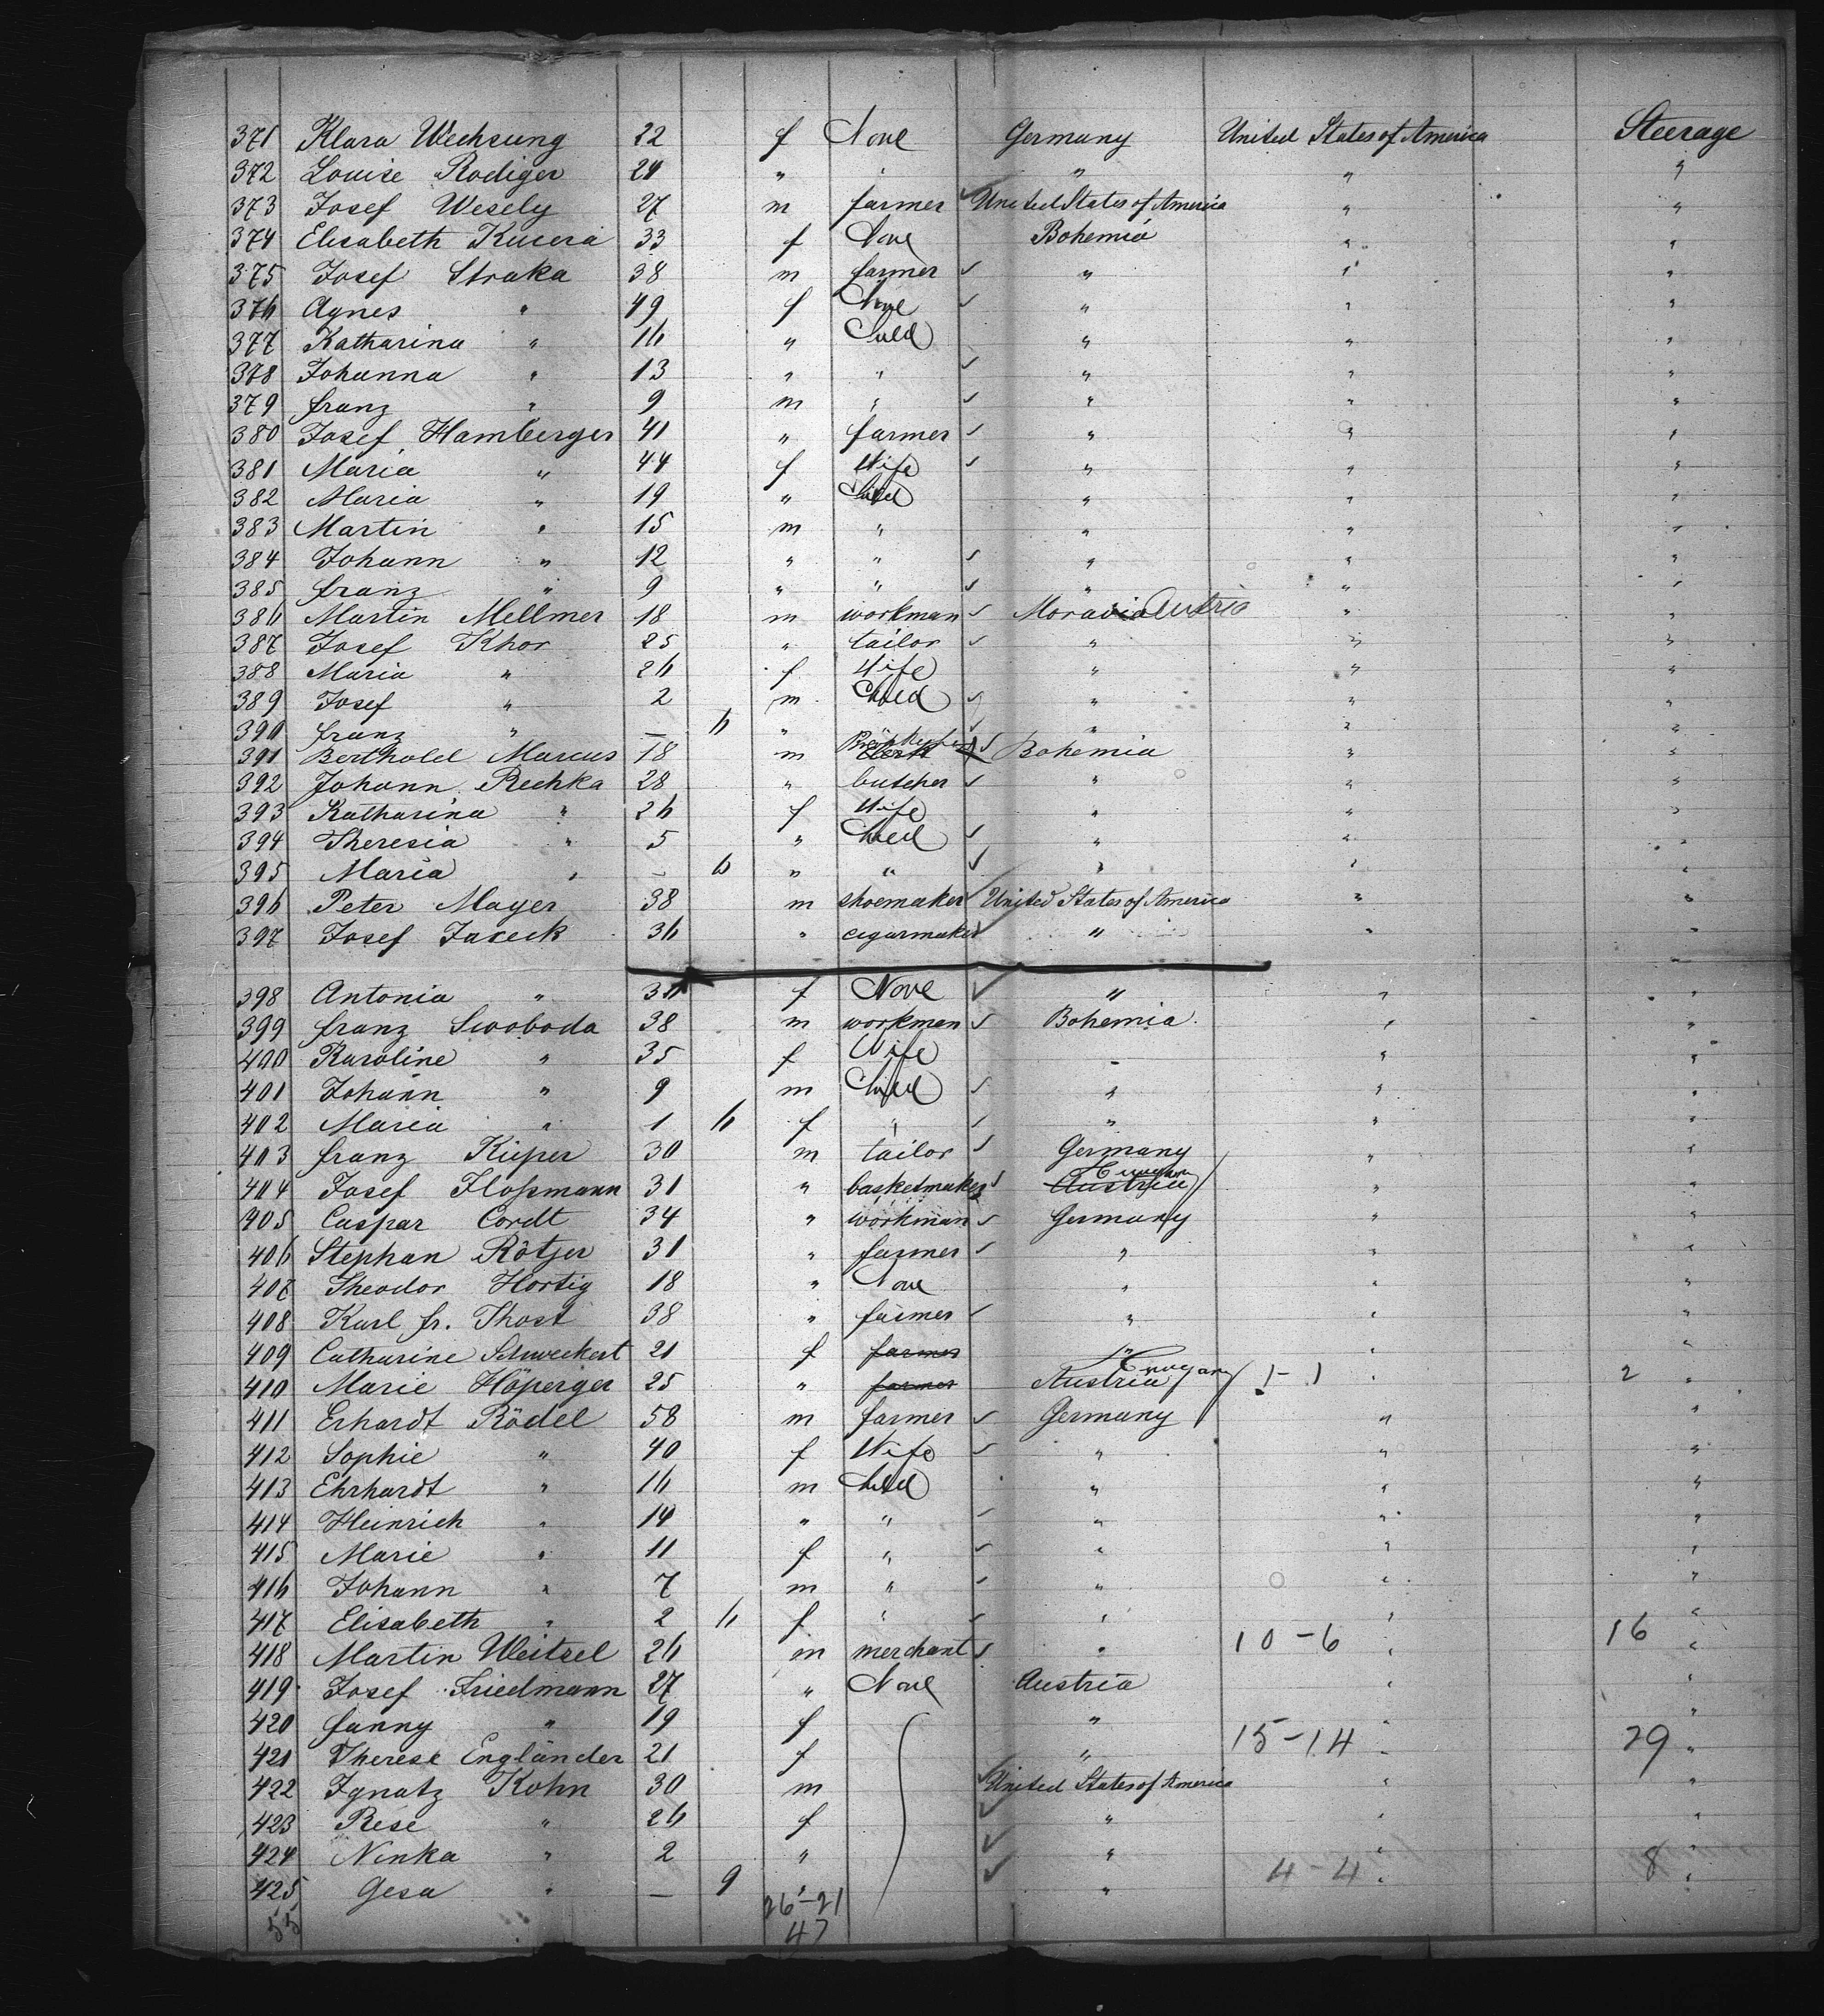 371 Klara Wechsung 22 f None Germany United States of America Steerage
372 Louise Rodiger 24 " " " " "
373 Josef Wesely 27 m farmer ✓ United States of America " "
374 Elisabeth Kucera 33 f None Bohemia " "
375 Josef Straka 38 m farmer ✓ " " "
376 Agnes " 49 f None ✓ " " "
377 Katharina " 16 " Child " " "
378 Johanna " 13 " " ✓ " " "
379 franz " 9 m " ✓ " " "
380 Josef Hamberger 41 " farmer ✓ " " "
381 Maria " 44 f Wife ✓ " " "
382 Maria " 19 " Child " " "
383 Martin " 15 m " " " "
384 Johann " 12 " " ✓ " " "
385 franz " 9 " " ✓ " " "
386 Martin Mellmer 18 m workman ✓ Moravia Austria " "
387 Josef Khor 25 " tailor ✓ " " "
388 Maria " 26 f Wife " " "
389 Josef " 2 m Child ✓ " " "
390 franz " — 6 " " ✓ " " "
391 Berthold Marcus 18 m Clerk ✓ Bohemia " "
392 Johann Rechka 28 " butcher ✓ " " "
393 Katharina " 26 f Wife " " "
394 Theresia " 5 " Child ✓ " " "
395 Maria " — 6 " " ✓ " " "
396 Peter Mayer 38 m shoemaker ✓ United States of America " "
397 Josef Jaceck 36 " cigarmaker ✓ " " "
398 Antonia " f None ✓ " " "
399 franz Swoboda 38 m workman ✓ Bohemia " "
400 Karoline " 35 f Wife " " "
401 Johann " 9 m Child ✓ " " "
402 Maria " 1 6 f " ✓ " " "
403 franz Kieper 30 m tailor ✓ Germany " "
404 Josef Floßmann 31 " basketmaker ✓ Austria Hungary " "
405 Caspar Cordt 34 " workman ✓ Germany " "
406 Stephan Rötzer 31 " farmer ✓ " " "
407 Theodor Hortig 18 " None " " "
408 Karl fr. Thost 38 " farmer ✓ " " "
409 Catharine Schweckert 21 f farmer " " "
410 Marie Höperger 25 " farmer Austria Hungary 1-1 " 2 "
411 Erhardt Rödel 58 m farmer ✓ Germany " "
412 Sophie " 40 f Wife ✓ " " "
413 Ehrhardt " 16 m Child " " "
414 Heinrich " 14 " " ✓ " " "
415 Marie " 11 f " ✓ " " "
416 Johann " 7 m " ✓ " " "
417 Elisabeth " 2 6 f " ✓ " " "
418 Martin Weitzel 26 m merchant ✓ " 10-6 " 16 "
419 Josef Friedmann 27 " None Austria " "
420 fanny " 19 f " " "
421 Therese Engländer 21 f " 15-14 " 29 "
422 Ignatz Kohn 30 m ✓ United States of America " "
423 Rese " 26 f ✓ " " "
424 Ninka " 2 " ✓ " " "
425 Gesa " — 9 " ✓ " 4-4 " 8 "
55 26-21
47